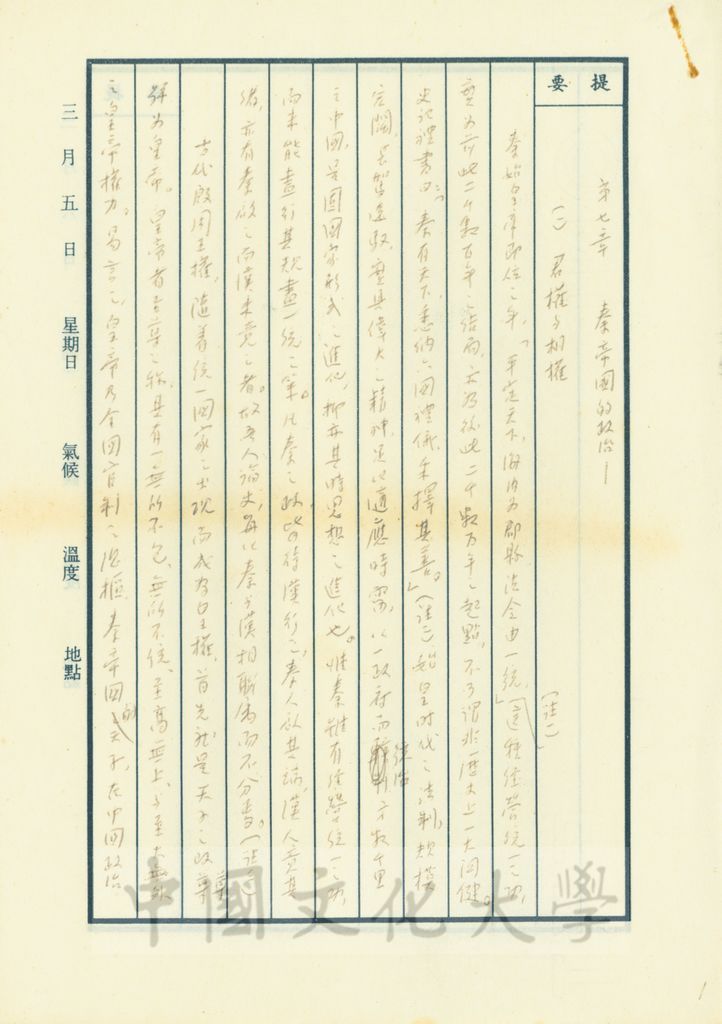 提要
第七章 秦帝國的政治
(一) 君權與相權
秦始皇帝即位之年,「平定天下,海內為郡縣,法令由一統」(註一)這種經營統一之功,
實為前此二千數百年之結局,亦為後此二千數百年之起點,不可謂非歷史上一大關鍵。
史記禮書曰:「秦有天下,悉納六國禮儀,采擇其善。」(註二)始皇時代之法制,規模
宏闊,長駕遠馭,實具偉大之精神,足以適應時需,以一政府而統治方數千里
之中國,是固國家形式之進化,抑亦其時思想之進化也。惟秦雖有經營統一之功,
而未能盡行其規畫一統之策。凡秦之政,皆待漢行之,秦人啟其端,漢人竟其
緒,亦有秦啟之而漢未竟之者。故吾人論史,每以秦與漢相聯屬而不分焉。(註三)
古代殷周王權,隨著統一國家之出現而成為皇權,首先就是天子之改尊
號為皇帝。皇帝者至尊之稱,具有一無所不包,無所不統,至高無上,與至大無
之皇帝權力。易言之,皇帝乃全國官制之總樞,秦帝國的天子,在中國政治
三月五日 星期日 氣候 溫度 地點
中國文化大學